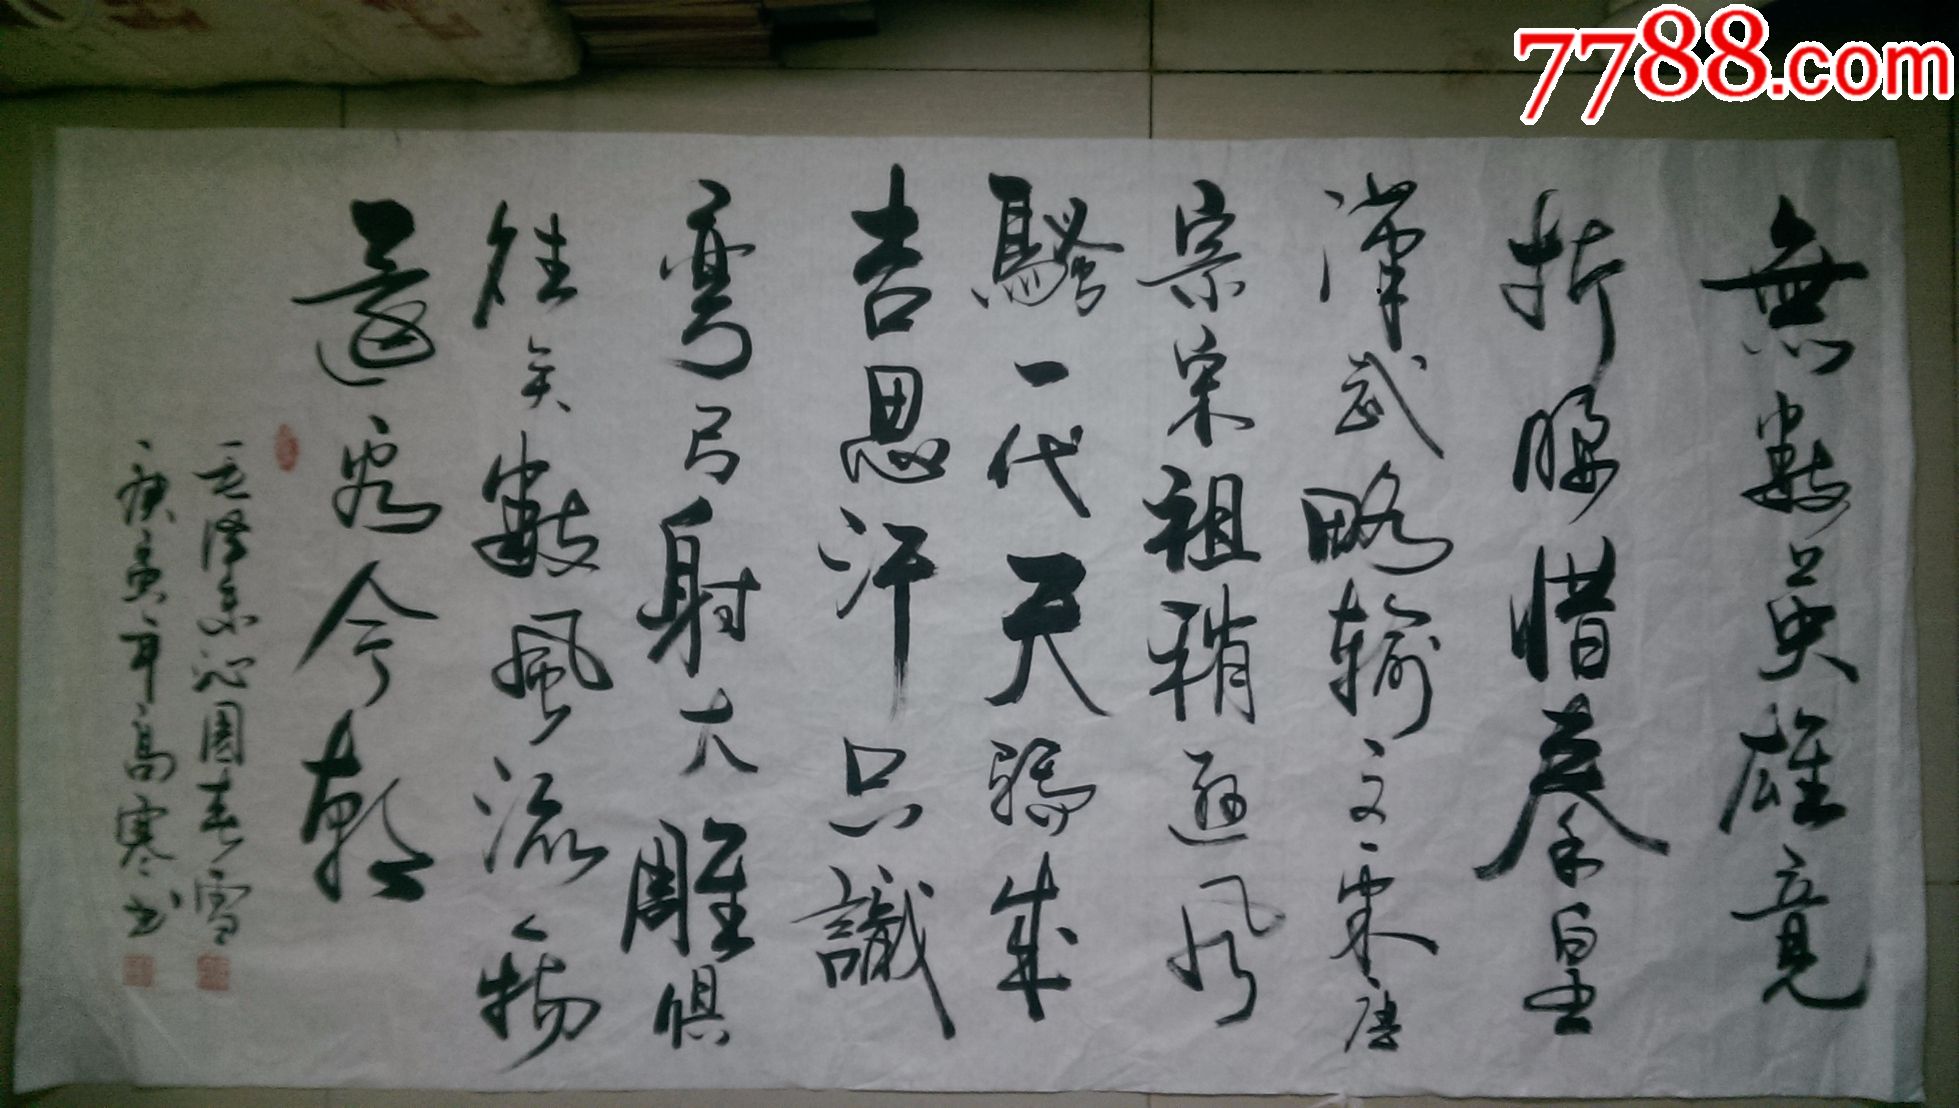 7788.com
無數英雄竟
折腰惜秦皇
漢武略輸文采唐
宗宋祖稍遜風
騷一代天驕成
吉思汗只識
彎弓射大雕俱
往矣數風流人物
還看今朝
毛澤東沁園春雪
庚寅年高寒书